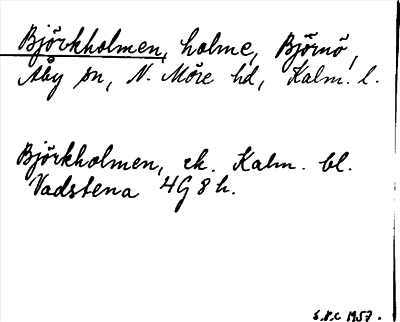 Björkholmen, holme, Björnö,
Åby sn, N. Möre hd, Kalm. l.
Björkholmen, ek. Kalm. bl.
Vadstena 4G8h.
1957.